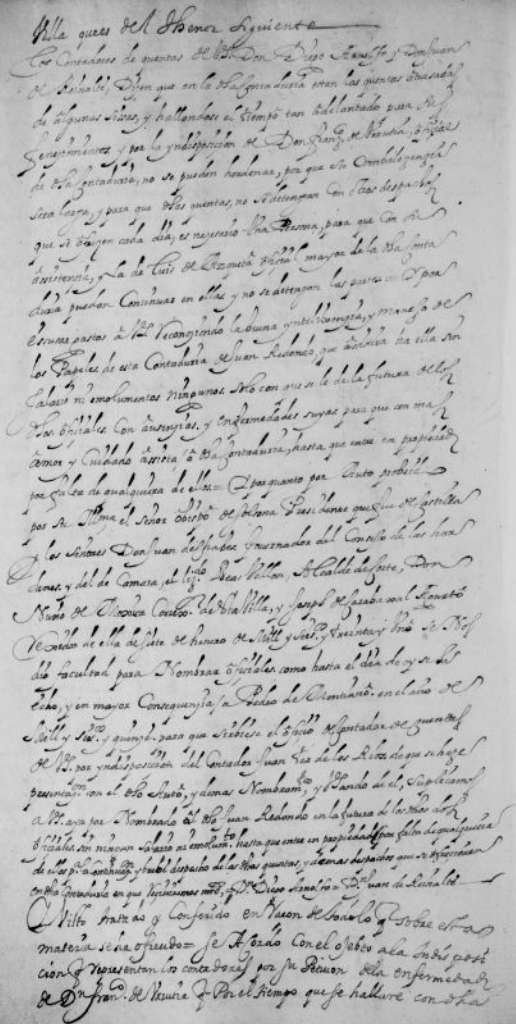 Villa que es del thenor siguiente
Los Contadores de quentas de V.S. Don Diego Arnolfo y Don Juan
de Reinalte, Dizen que en la dha Contaduria estan las quentas atrasadas
de algunas sisas, y hallandose el tiempo tan adelantado para sus
fenezimientos, y por la yndisposicion de Don Franco de Vrrutia, oficial
de dha Contaduria, no se pueden hordenar, por que su Combalezenzia
sera larga, y para que dhas quentas, no se detengan con otros despachos
que se ofrezen cada dia, es nezesario Vna Persona, para que con su
assistencia, y la de Luis de offizial mayor de la dha Conta
duria puedan Continuar en ellas y no se detengan las partes = Y por
escusar gastos a V.S. Recongziendo la buena yntelixenzia, y manejo de
los Papeles de esta Contaduria de Juan Redondo, que assistira en ella sin
salario ni emolumentos ningunos, solo con que se le de la futura de los
dhos ofiziales, con ausenzias, y enfermedades suyas para que con mas
Amor y Cuidado assista, a dha Contaduria, hasta que entre en propiedad
por falta de qualquiera de ellos = Y por quanto por Auto
por su Illma el señor obispo de Solsona Presidente que fue de Castilla
y los señores Don Juan de Chabes Governador del Consejo de las hor
denes, y del de Camara, el Lizdo Alcalde de Corte, Don
Nuño de Moxica Corregr de dha Villa, y Joseph de Carabaxal
Rexidor de ella de siete de henero de Mill y seiss y treinta y Vno se Nos
dio facultad para Nombrar offiziales como hasta el dia de oy se ha
echo, y en mayor Consequenzia a Pedro de en el año de
Mill y seiss y quinze, para que sirbiese el offizio de Contador de quentas
de V.S. por yndisposizion del Contador Juan de los Rios, de que se haze
presentazon con el dho Auto, y demas Nombramtos y Vsando de el, suplicamos
a V.S. aya por Nombrado al dho Juan Redondo en la futura de los dhos dos
ofiziales sin salario ni emolumto hasta que entre en propiedad por falta de qualquiera
de ellos pa la continuazon y buen despacho de las dhas quentas, y demas despachos que se ofrezieren
en dha Contaduria en que Reziviremos mrd = Dn Diego Arnolfo = Dn Juan de Reinalte
Visto tratado y Conferido en Razon de todo lo q sobre esta
materia se ha ofrezido = se Acordo Con el ojebto a la Indisposi
cion q representan los contadores por su Peticion de la enfermedad
de Dn Frando de Vrrutia q Por el tiempo que se hallare con dha